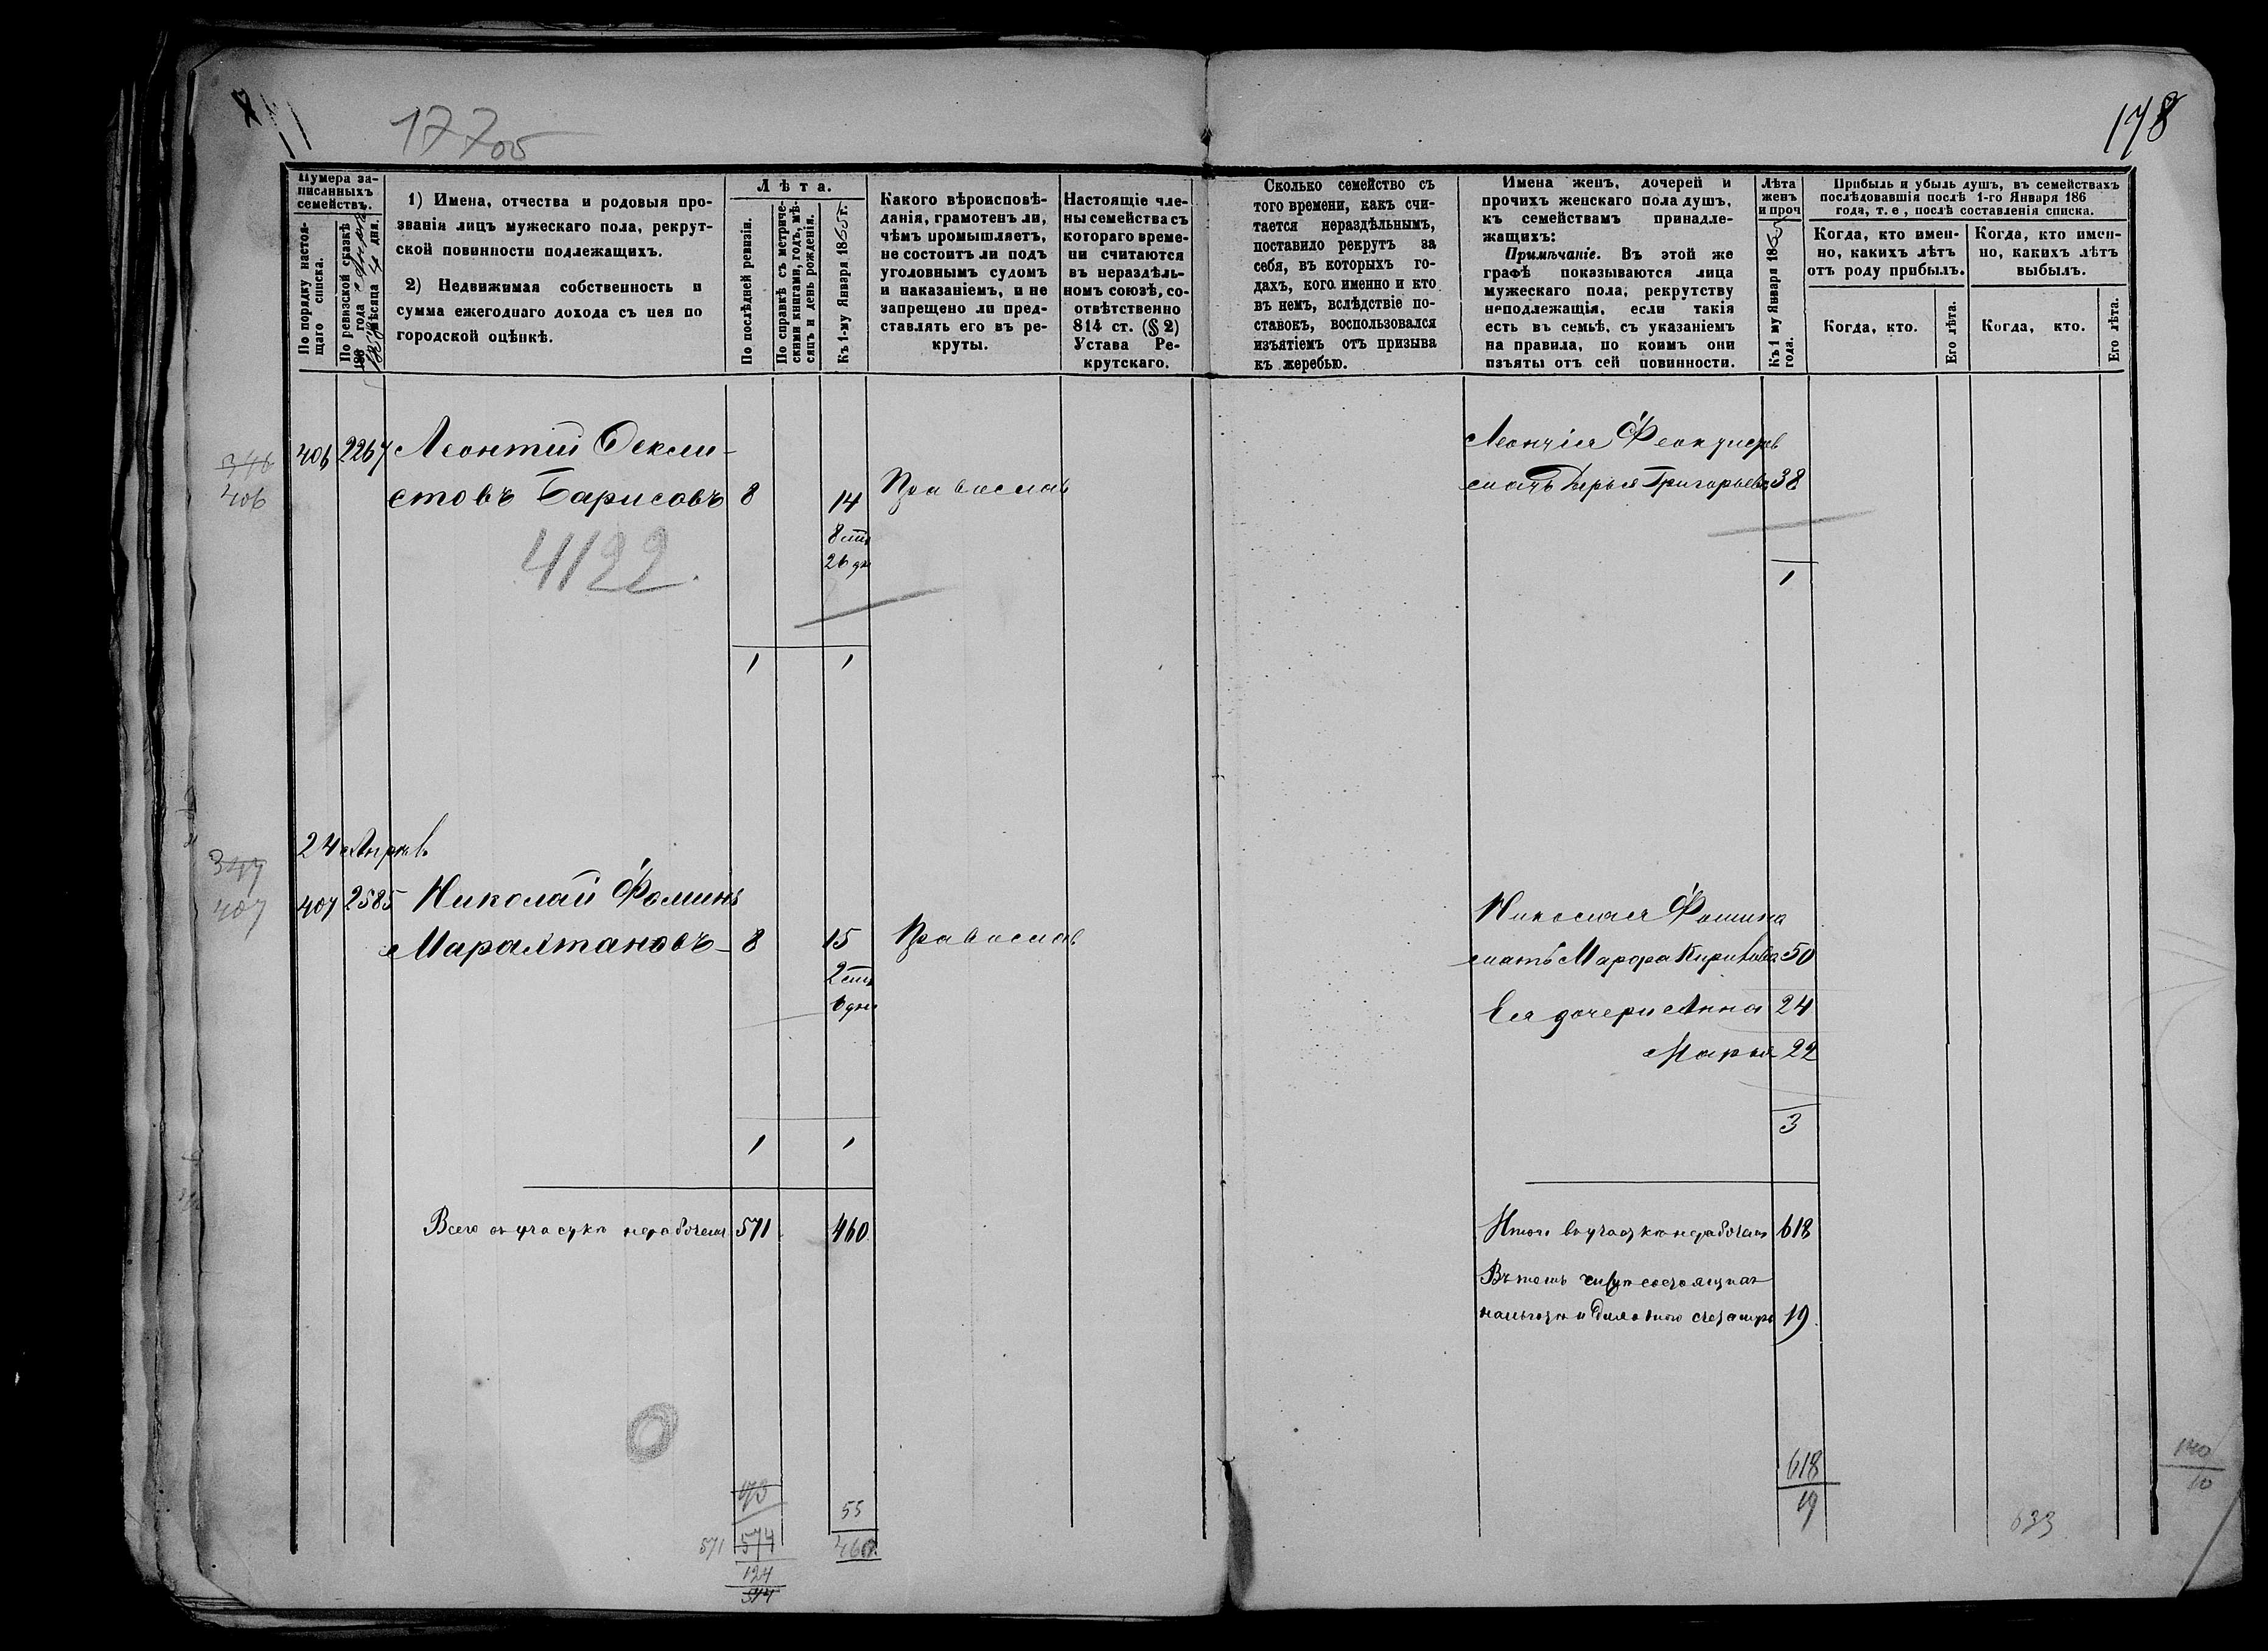 177об
178
Нумера за-
писанныхъ
семействъ.
По порядку настоя-
щаго списка.
По ревизской сказкѣ
186 года
мѣсяца 4 дня.
1) Имена, отчества и родовыя про-
званія лицъ мужескаго пола, рекрут-
ской повинности подлежащихъ.
2) Недвижимая собственность и
сумма ежегоднаго дохода съ нея по
городской оцѣнкѣ.
Лѣта.
По послѣдней ревизіи.
По справкѣ съ метриче-
скими книгами, годъ, мѣ-
сяцъ и день рожденія.
Къ 1-му Января 1865 г.
Какого вѣроисповѣ-
данія, грамотенъ ли,
чѣмъ промышляетъ,
не состоитъ ли подъ
уголовнымъ судомъ
и наказаніемъ, и не
запрещено ли пред-
ставлять его въ ре-
круты.
Настоящіе чле-
ны семейства съ
котораго време-
ни считаются
въ нераздѣль-
номъ союзѣ, со-
отвѣтственно
814 ст. (§ 2)
Устава Ре-
крутскаго.
Сколько семейство съ
того времени, какъ счи-
тается нераздѣльнымъ,
поставило рекрутъ за
себя, въ которыхъ го-
дахъ, кого именно и кто
въ немъ, вслѣдствіе по-
ставокъ, воспользовался
изъятіемъ отъ призыва
къ жеребью.
Имена женъ, дочерей и
прочихъ женскаго пола душъ,
къ семействамъ принадле-
жащихъ:
Примѣчаніе. Въ этой же
графѣ показываются лица
мужескаго пола, рекрутству
неподлежащія, если такія
есть въ семьѣ, съ указаніемъ
на правила, по коимъ они
изъяты отъ сей повинности.
Лѣта
женъ
и проч
Къ 1 му Января 1865
года.
Прибыль и убыль душъ, въ семействахъ
послѣдовавшія послѣ 1-го Января 186
года, т. е, послѣ составленія списка.
Когда, кто имен-
но, какихъ лѣтъ
отъ роду прибылъ.
Когда, кто имен-
но, какихъ лѣтъ
выбылъ.
Когда, кто.
Его лѣта.
Когда, кто.
Его лѣта.
346
406
406 2267 Леонтій Фекли-
стовъ Барисовъ 8 14 Православ
8 мѣ
26 дн
4122.
1 1
Леонтія Феоктистов
мать Дарья Григорьева 38
1
24 Апрѣл
347
407
407 2585 Николай Фоминъ
Маралтановъ 8 15 Православ
2 мѣ
6 дне
1 1
Николая Фомина
мать Марфа Кирилова 50
Ея дочери Анна 24
Марья 22
3
Всего въ участкѣ нерабочем 571 460
Итого въ участкѣ нерабочем 618
Въ томъ числѣ состоящихъ
19
571 574
124
314
55
460
618
19
633
140
10